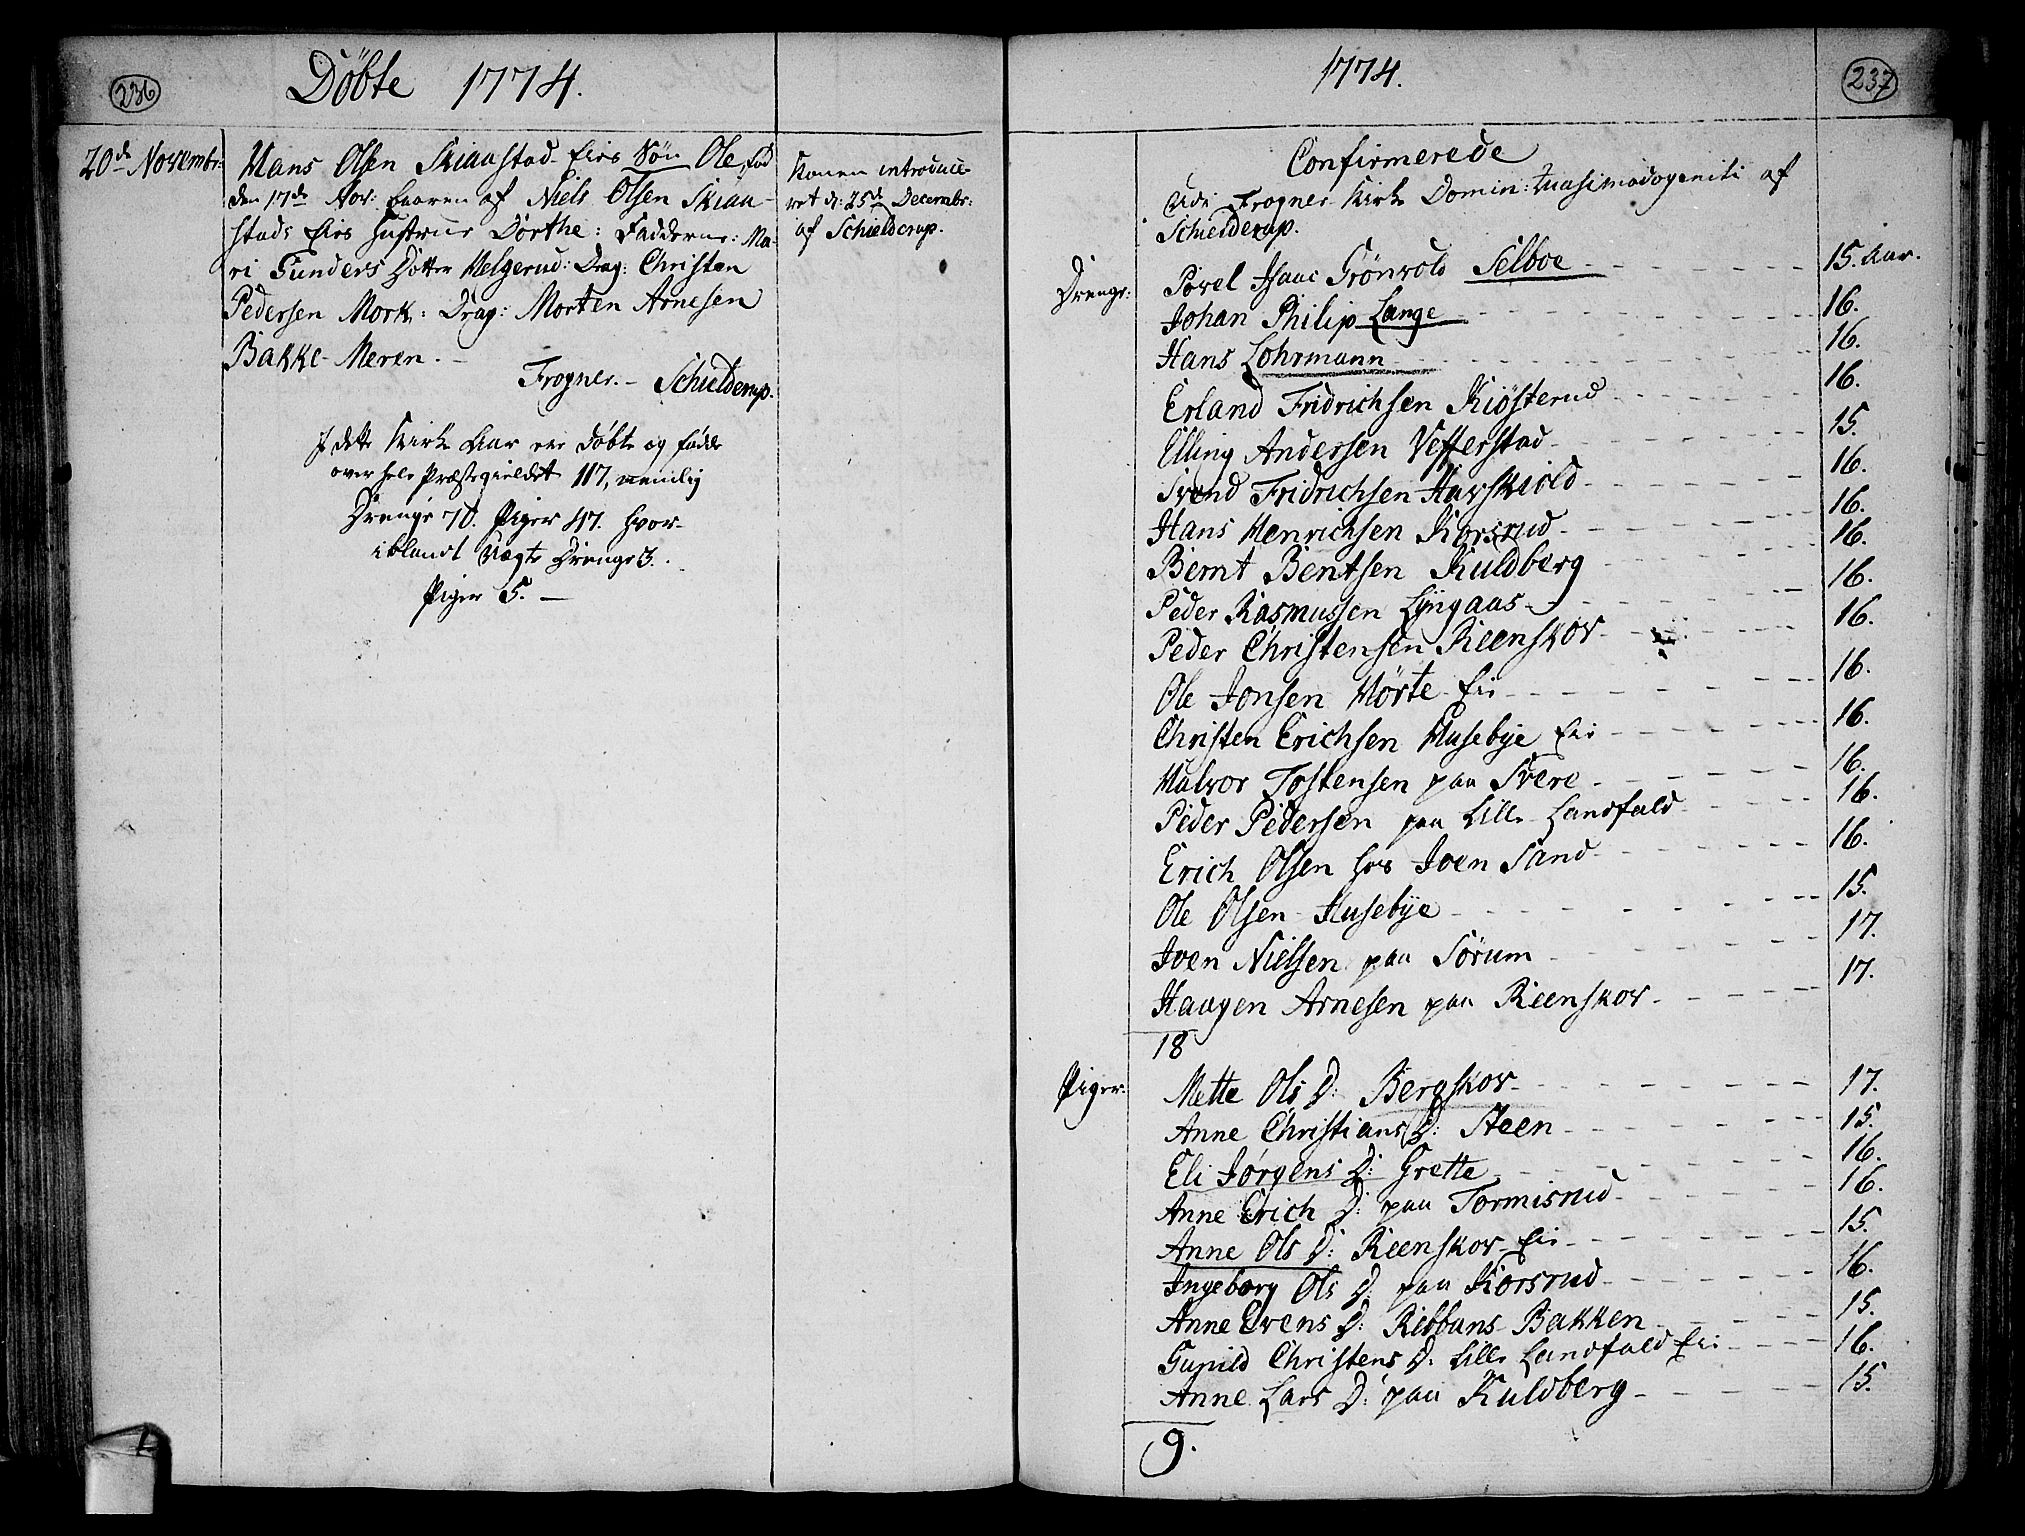 236
Döbte 1774.
20de Novembr:
Hans Olsen Skiaastad Eies Søn Ole, fød
den 17de Nov: baaren af Niels Olsen Skiaa-
stads Eies Hustrue Dorthe: Fadderne: Ma-
ri Gunders Dotter Melgerud: Drag: Christen
Pedersen Mork: Drag: Morten Arnesen
Bakke Meren. –
Frogner. – Schielderup.
Konen introduce-
ret d: 25de Decembr:
af Schielderup.
I dette Kirke Aar ere Døbte og fødde
over hele Præstegieldet 117, nemlig
Drenge 70. Piger 47. hvor-
iblandt Uægte Drenge 3.
Piger 5. –
1774.
237
Confirmerede
Udi Frogner Kirke Domin: Quasimodogeniti af
Schielderup.
Drenge:
Povel Isaac Grönvold Selboe 15. Aar.
Johan Philip Lange 16.
Hans Lohrmann 16.
Erland Fridrichsen Kiösterud 16.
Elling Andersen Vefferstad 15.
Svend Fridrichsen Haxskiold 16.
Hans Henrichsen Korsrud 16.
Bernt Bentsen Kuldberg 16.
Peder Rasmussen Lyngaas 16.
Peder Christensen Reenskov 16.
Ole Jonsen Mörte Eie 16.
Christen Erichsen Husebye Eie 16.
Halvor Tostensen paa Svere 16.
Peder Pedersen paa Lille Landfald 16.
Erich Olsen hos Iven Sand 16.
Ole Olsen Husebye 15.
Iven Nielsen paa Sörum 17.
Haagen Arnesen paa Reenskov 17.
18
Piger:
Mette Ols D: Bergskov 17.
Anne Christians D: Steen 15.
Eli Jörgens D: Grette 16.
Anne Erich D: paa Tormisrud 16.
Anne Ols D: Reenskov Eie 15.
Ingeborg Ols D: paa Korsrud 16.
Anne Evens D: Ribbans Bakken 15.
Gunild Christens D. Lille Landfald Eie 16.
Anne Lars D: paa Kuldberg 15.
9.